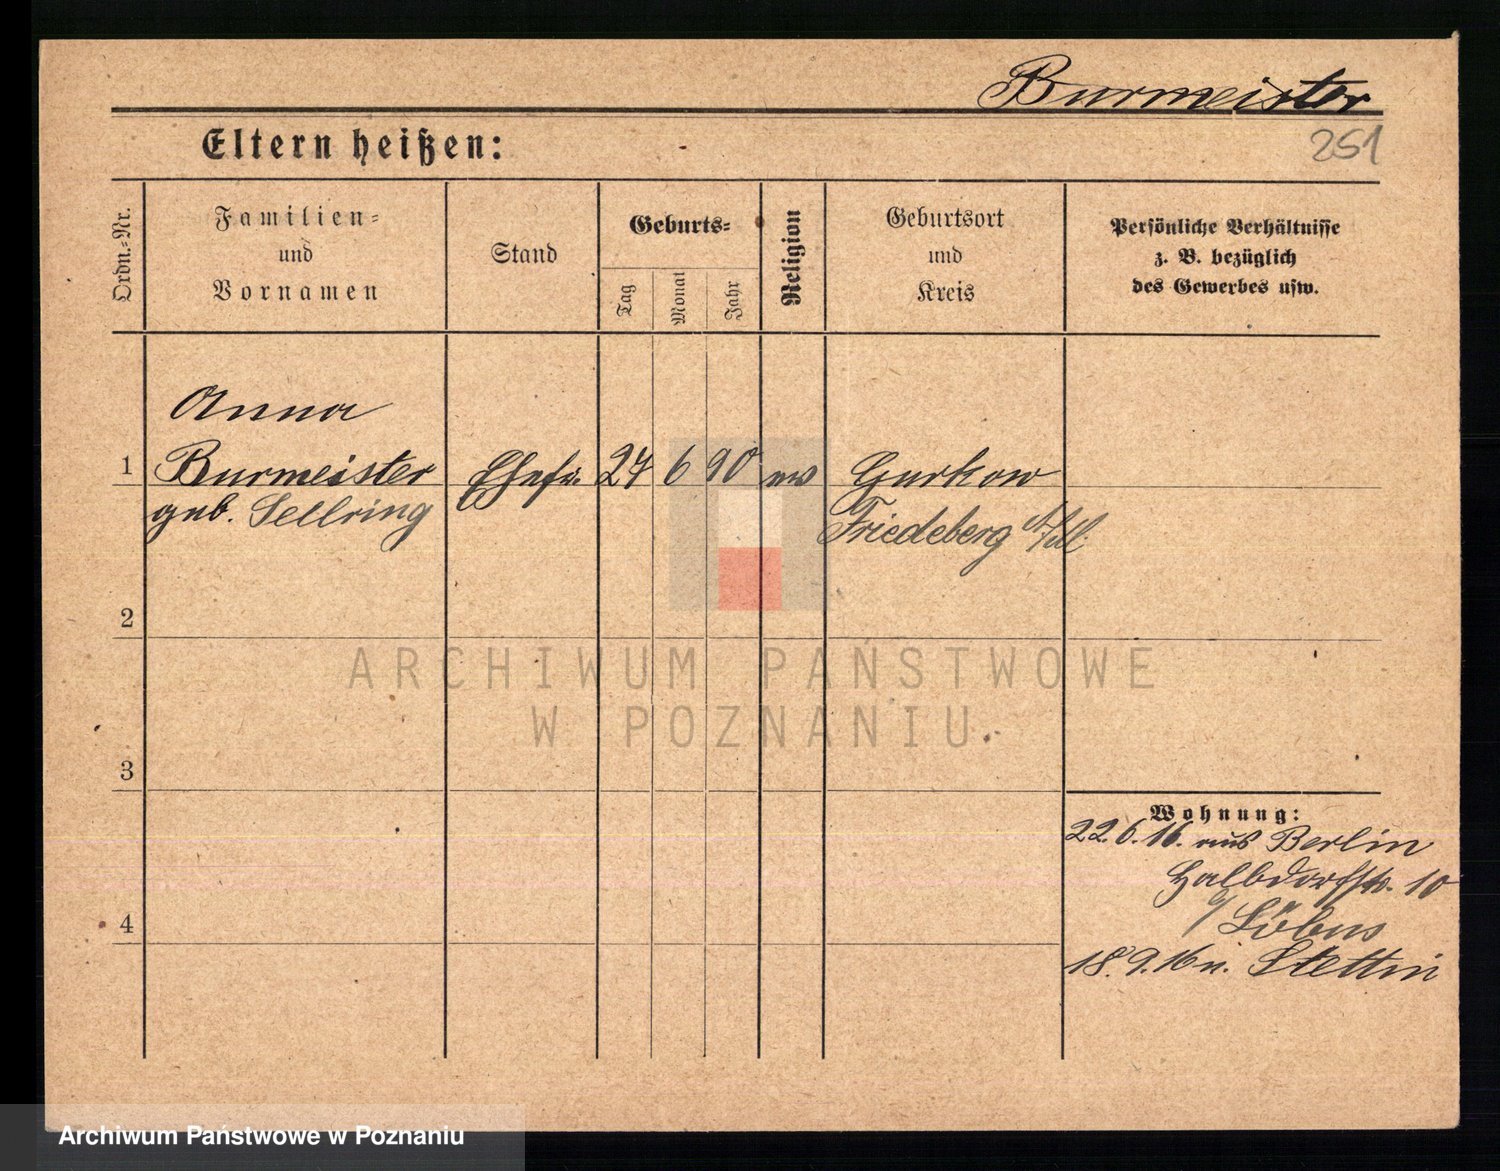 Burmeister
251
Eltern heißen:
Ordn.-Nr.
Familien-
und
Vornamen
Stand
Geburts-
Tag
Monat
Jahr
Religion
Geburtsort
und
Kreis
Persönliche Verhältnisse
z. B. bezüglich
des Gewerbes usw.
Anna
1 Burmeister Ehefr. 27 6 90 ev Gurkow
geb. Sellring Friedeberg N/M
2
ARCHIWUM PAŃSTWOWE
W POZNANIU
3
Wohnung:
22.6.16. aus Berlin
Halbdorfstr. 10
b/ Löbus
4
18.9.16 n. Stettin
Archiwum Państwowe w Poznaniu